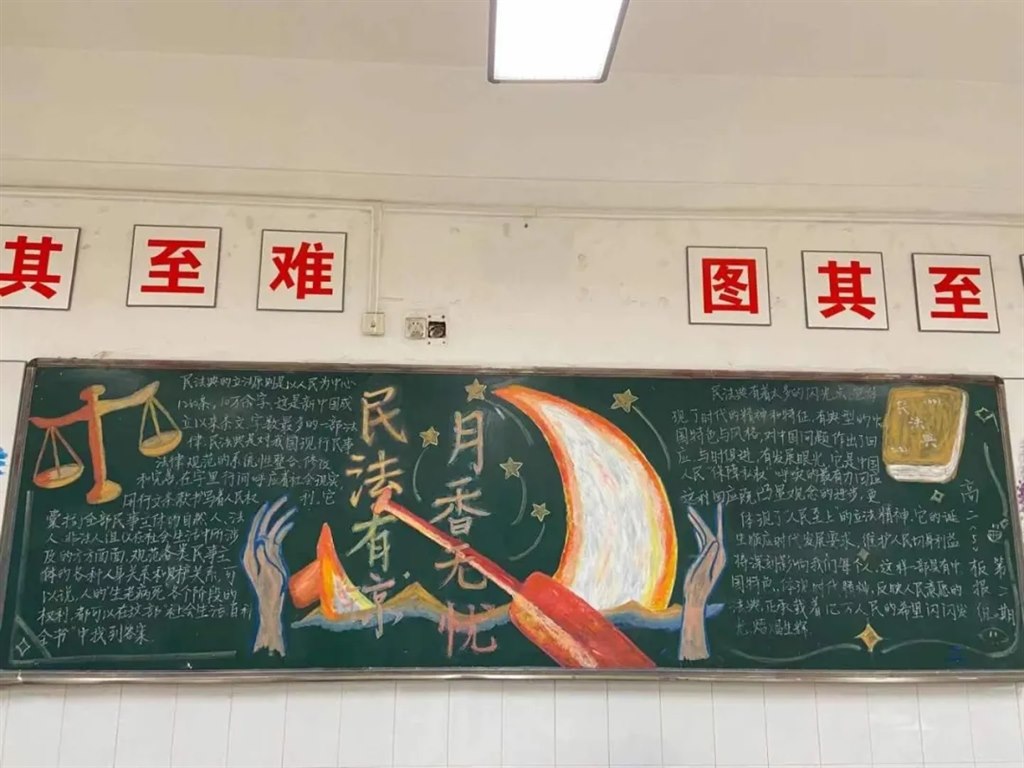 其至难
图其至
民法典的立法原则是以人民为中心
1260条,10万余字,这是新中国成
立以来条文字数最多的一部法
律.民法典是对我国现行民事
法律规范的系统性整合、修改
在字里行间呼应着社会现实
用行文条款书写着人民权 它
囊括了全部民事主体的自然人、法
人、非法人组织在社会生活中所涉
及的方方面面,规范各类民事主
体的各种人身关系和财产关系,可
以说,人的生老病死各个阶段的
权利,都可以在这部"社会生活百科
全书"中找到答案
民法有亮
月香无忧
民法典有着太多的闪光点,它体
现了时代的精神和特征,有典型的中
国特色与风格,对中国问题作出了回
应,与时俱进,有发展眼光,它是中国
人民"保障私权"呼唤的最有力回应
这种回应既凸显观念的进步,更
体现了人民至上的立法精神,它的诞
生顺应时代发展要求,维护人民切身利益
将深刻影响我们每个人,这样一部具有中
国特色、体现时代精神、反映人民意愿的
法典,正承载着亿万人民的希望闪闪发
光,熠熠生辉.
民法典
高二(5)板报组
第二期